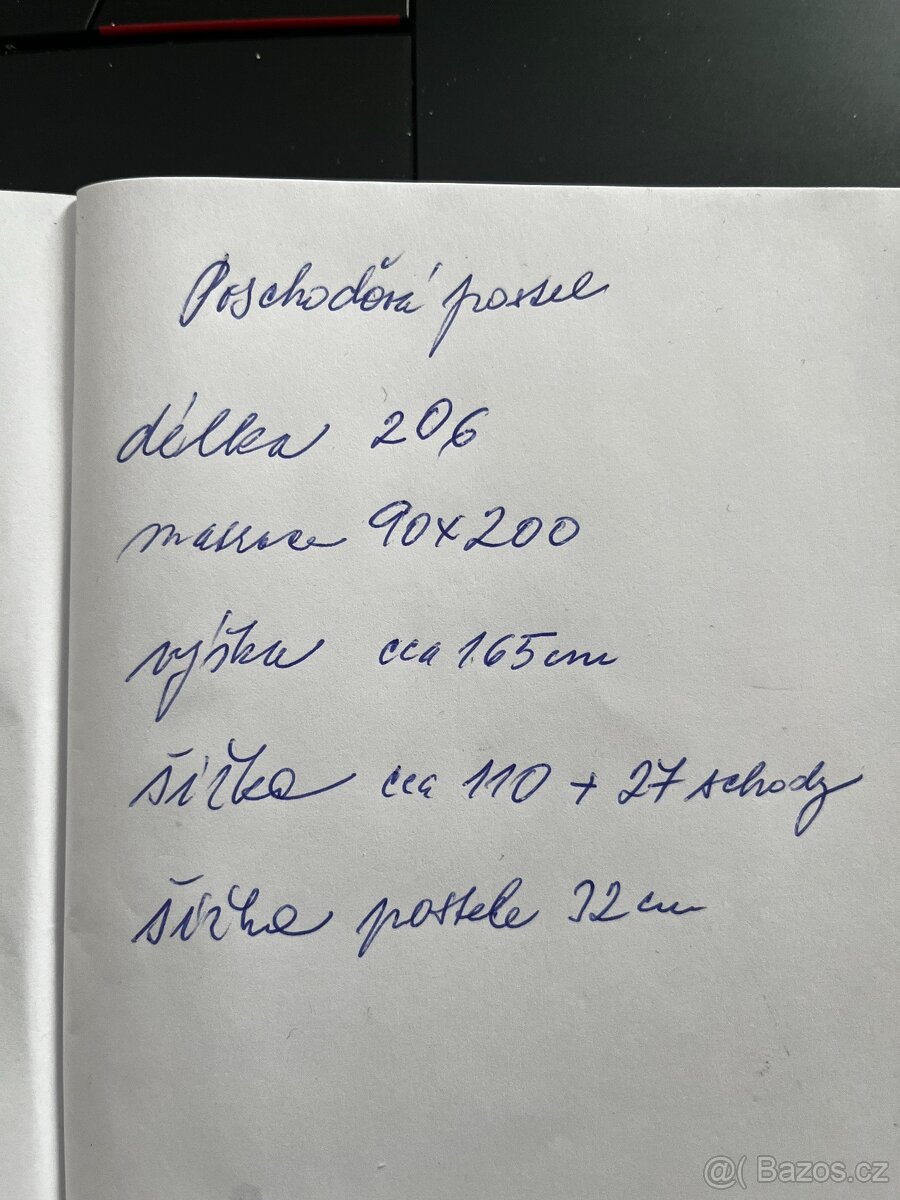 Poschoďová postel
délka 206
matrace 90x200
výška cca 165cm
šířka cca 110 + 27 schody
šířka postele 32cm
@( Bazos.cz